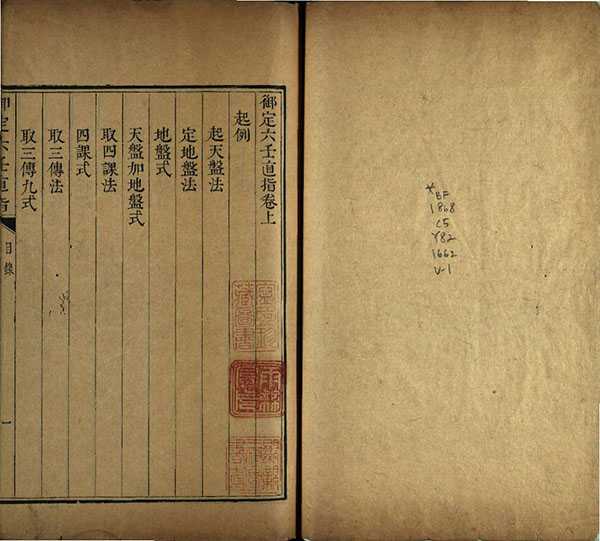 *BF
1868
C5
Y82
1662
V-1
御定六壬直指卷上
起例
起天盤法
定地盤法
地盤式
天盤加地盤式
取四課法
四課式
取三傳法
取三傳九式
御定六壬直指
目錄
一